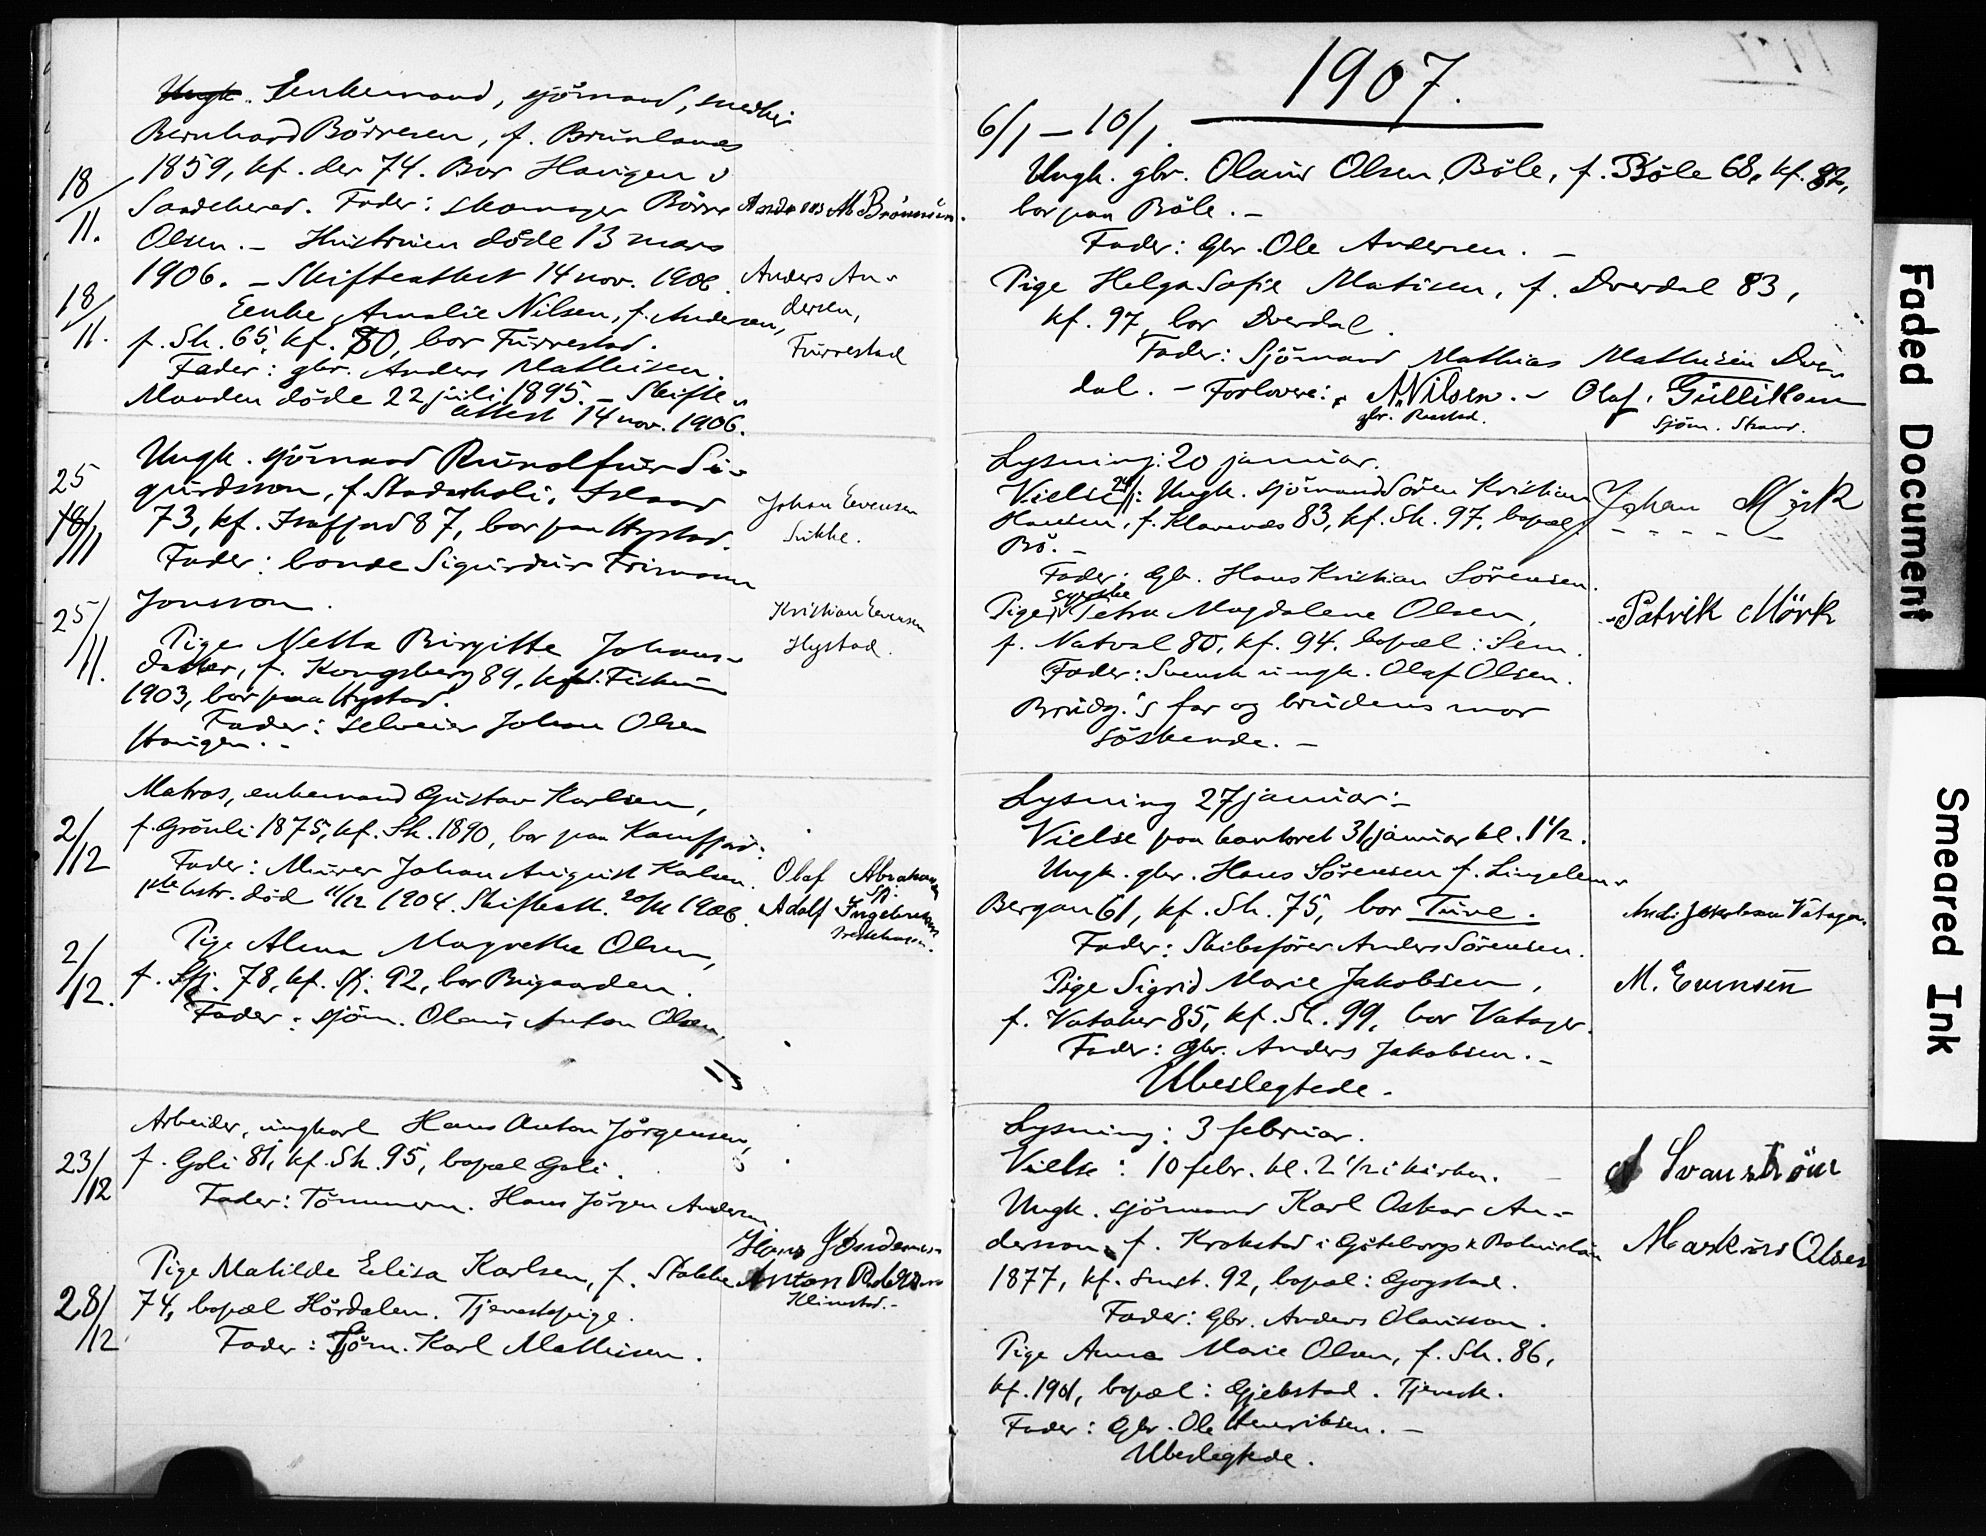 Ungk. Enkemand, sjömand, snedker
Bernhard Börresen, f. Brunlanes
1859, kf. der 74. Bor Haugen i
18/11. Sandeherred. Fader: skomager Börre
Olsen. – Hustruen döde 13 mars
1906. – Skifteattest 14 nov. 1906.
Andreas M Brönnum.
Anders An-
dersen,
Furrestad
18/11. Enke Amalie Nilsen, f. Andersen,
f. Sh. 65, kf. 80, bor Furrestad.
Fader: gbr. Anders Mathisen.
Manden döde 22 juli 1895. – Skifte-
attest 14 nov. 1906.
25
18/11
Ungk. sjömand Runolfur Si-
gurdsson, f. Stadarholi, Island
73, kf. Isafjord 87, bor paa Hystad.
Fader: bonde Sigurdur Frimann
Jonsson.
Johan Evensen
Sukke.
25/11. Pige Netta Birgitte Johans-
datter, f. Kongsberg 89, kf. Fiskum
1903, bor paa Hystad.
Fader: selveier Johan Olsen
Haugen. –
Kristian Evensen
Hystad.
2/12 Matros, enkemand Gustav Karlsen,
f. Grönli 1875, kf. Sh. 1890, bor paa Kamfjord.
Fader: Murer Johan August Karlsen.
1ste hstr. död 11/12 1904. Skifteatt. 20/11 1906.
Olaf Abrahamsen
Sfj.
Adolf Ingebretsen
2/12. Pige Alma Magrethe Olsen,
f. Sfj. 78, kf. Sfj. 92, bor Brygaarden.
Fader: sjöm. Olaus Anton Olsen
23/12 Arbeider, ungkarl Hans Anton Jörgensen,
f. Goli 81, kf. Sh. 95, bopæl Goli.
Fader: Tömmerm. Hans Jörgen Andersen
28/12 Pige Matilde Elisa Karlsen, f. Stokke
74, bopæl Hördalen. Tjenestepige.
Fader: Sjöm. Karl Mathisen.
Anton
1907.
6/1 – 10/1.
Ungk. gbr. Olaus Olsen Böle, f. Böle 68, kf. 82,
bor paa Böle. –
Fader: Gbr. Ole Andersen. –
Pige Helga Sofie Matisen, f. Dverdal 83,
kf. 97, bor Dverdal.
Fader: Sjömand Mathias Mathisen Dver-
dal. – Forlovere: A. Nilsen. – Olaf Gulliksen
gbr. Sjöm. Strand.
Lysning: 20 januar.
Vielse 24/1: Ungk. sjömand Sören Kristian
Hansen, f. Klavenes 83, kf. Sh. 97, bopæl
Bö. –
Fader: Gbr. Hans Kristian Sörensen.
Johan Mörk
Pige, syerske Petra Magdalene Olsen,
f. Natval 80, kf. 94, bopæl: Sem.
Fader: Svensk ungk. Olaf Olsen.
Brudg.'s far og brudens mor
söskende. –
Patrik Mörk
Lysning 27 januar: –
Vielse paa kontoret 31 januar kl. 1 1/2.
Ungk. gbr. Hans Sörensen f. Lingelem-
Bergan 61, kf. Sh. 75, bor Tuve.
Fader: Skibsförer Anders Sörensen.
Pige Sigrid Marie Jakobsen,
f. Vataker 85, kf. Sh. 99, bor Vatager.
Fader: Gbr. Anders Jakobsen. –
Ubeslegtede.
M. Evensen
Lysning: 3 februar.
Vielse: 10 febr. kl. 2 1/2 i kirken.
Ungk. sjömand Karl Oskar An-
dersson, f. Krokstad i Göteborgs & Bohuslän
1877, kf. smst. 92, bopæl: Gogstad.
Fader: Gbr. Anders Olausson.
Pige Anna Marie Olsen, f. Sh. 86,
kf. 1901, bopæl: Gjekstad. Tjenestk.
Fader: Gbr. Ole Henriksen. –
Ubeslegtede.
A Svanström
Markus Olsen
Faded Document
Smeared Ink